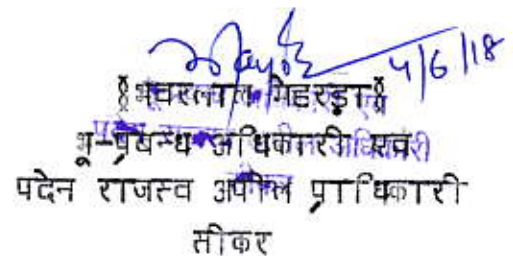 4/6/18
﴾भंवरलाल मेहरड़ा﴿
भू-प्रबन्ध अधिकारी एवं
पदेन राजस्व अपील प्राधिकारी
सीकर